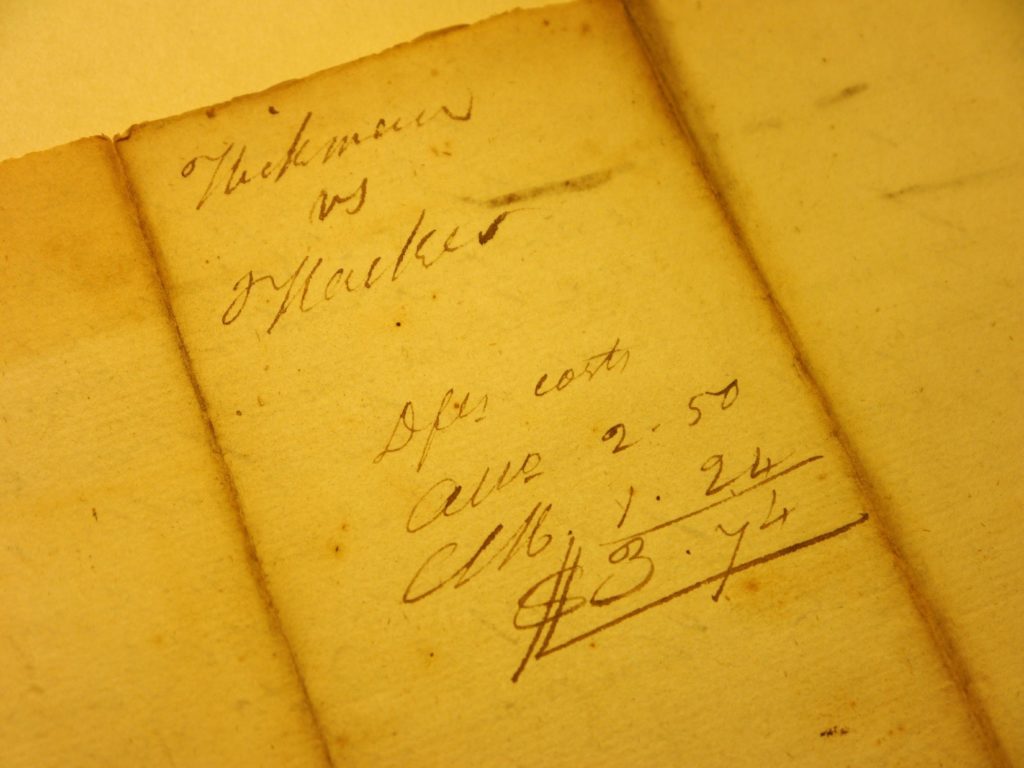 Hickman
vs
Harker
Dfts costs
Atto 2.50
Clk. 1.24
$3.74